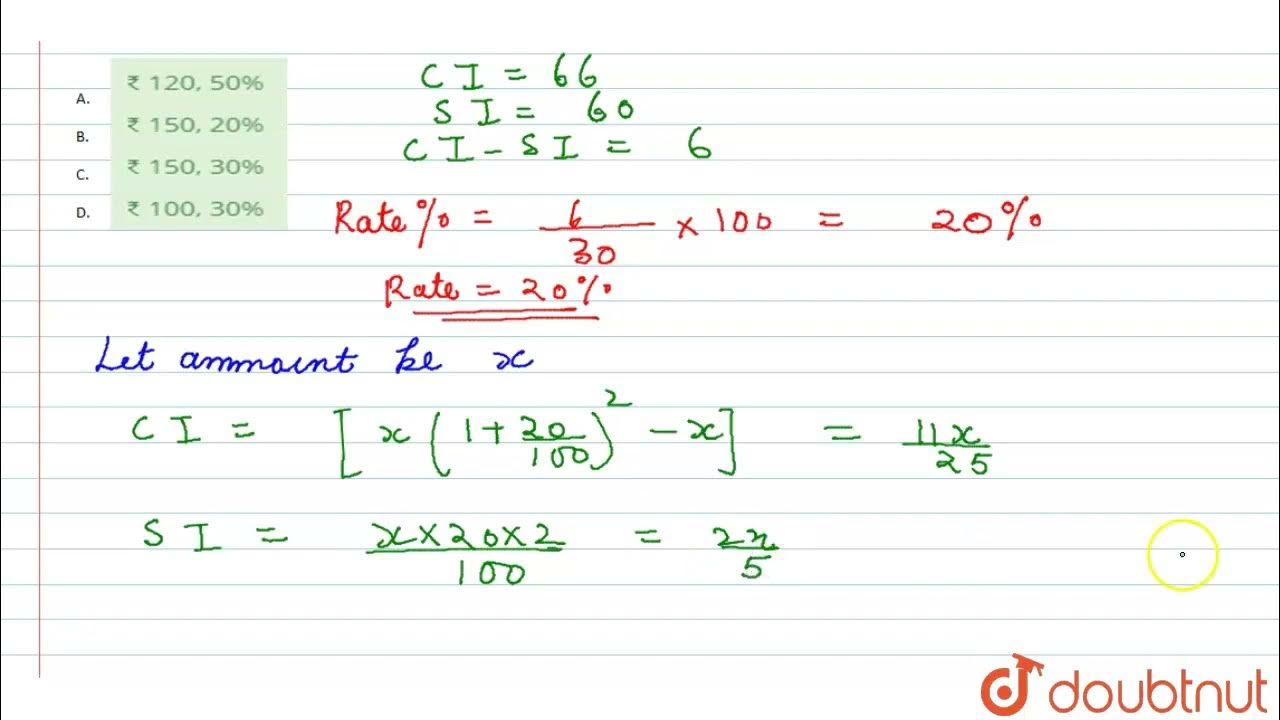 A. ₹ 120, 50%
B. ₹ 150, 20%
C. ₹ 150, 30%
D. ₹ 100, 30%
C I = 66
S I = 60
C I - S I = 6
Rate % = 6/30 × 100 = 20%
Rate = 20%
Let ammaint be x
C I = [x(1 + 20/100)² - x] = 11x/25
S I = x×20×2/100 = 2x/5
doubtnut